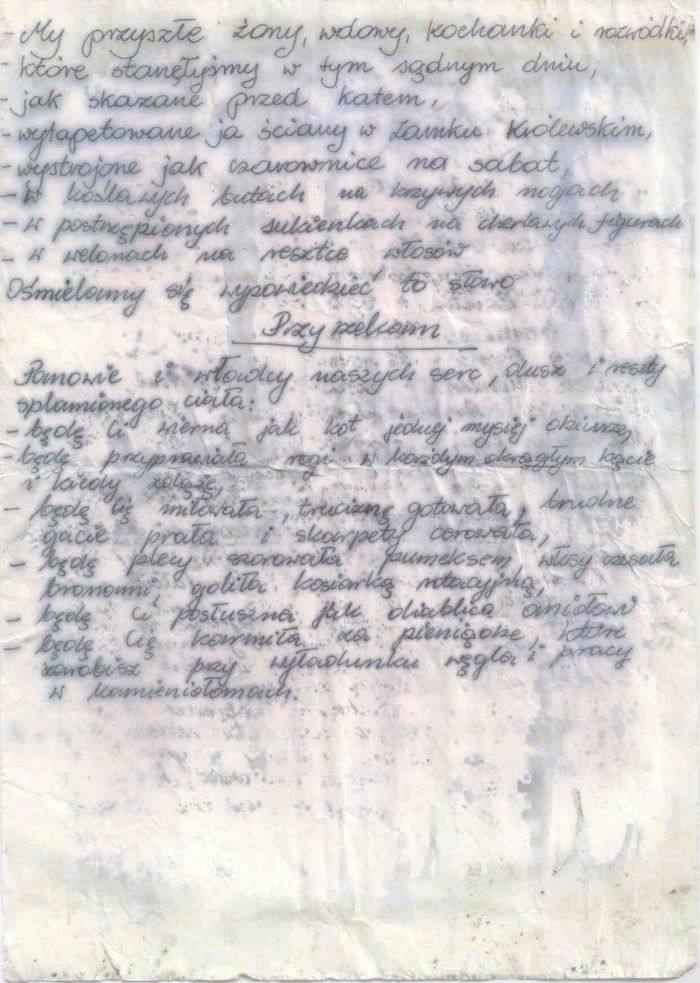 - My przyszłe żony, wdowy, kochanki i rozwódki,
- które stanęłyśmy w tym sądnym dniu,
- jak skazane przed katem,
- wytapetowane ja ściany w Zamku Królewskim,
- wystrojone jak czarownice na sabat,
- w koślawych butach na krzywych nogach
- w postrzępionych sukienkach na cherlawych figurach
- w welonach na resztce włosów
Ośmielamy się wypowiedzieć to słowo
Przyrzekam
Panowie i władcy naszych serc, dusz i reszty
splamionego ciała:
- będę Ci wierna jak kot jednej mysiej dziurze,
- będę przyprawiała rogi w każdym okrągłym kącie
i kiedy zdążę,
- będę Cię miłowała, truciznę gotowała, brudne
gacie prała i skarpety cerowała,
- będę plecy szorowała pumeksem, włosy czesała
bronami, goliła kosiarką rotacyjną,
- będę Ci posłuszna jak diablica aniołowi
- będę Cię karmiła za pieniądze, które
zarobisz przy wyładunku węgla i pracy
w kamieniołomach.